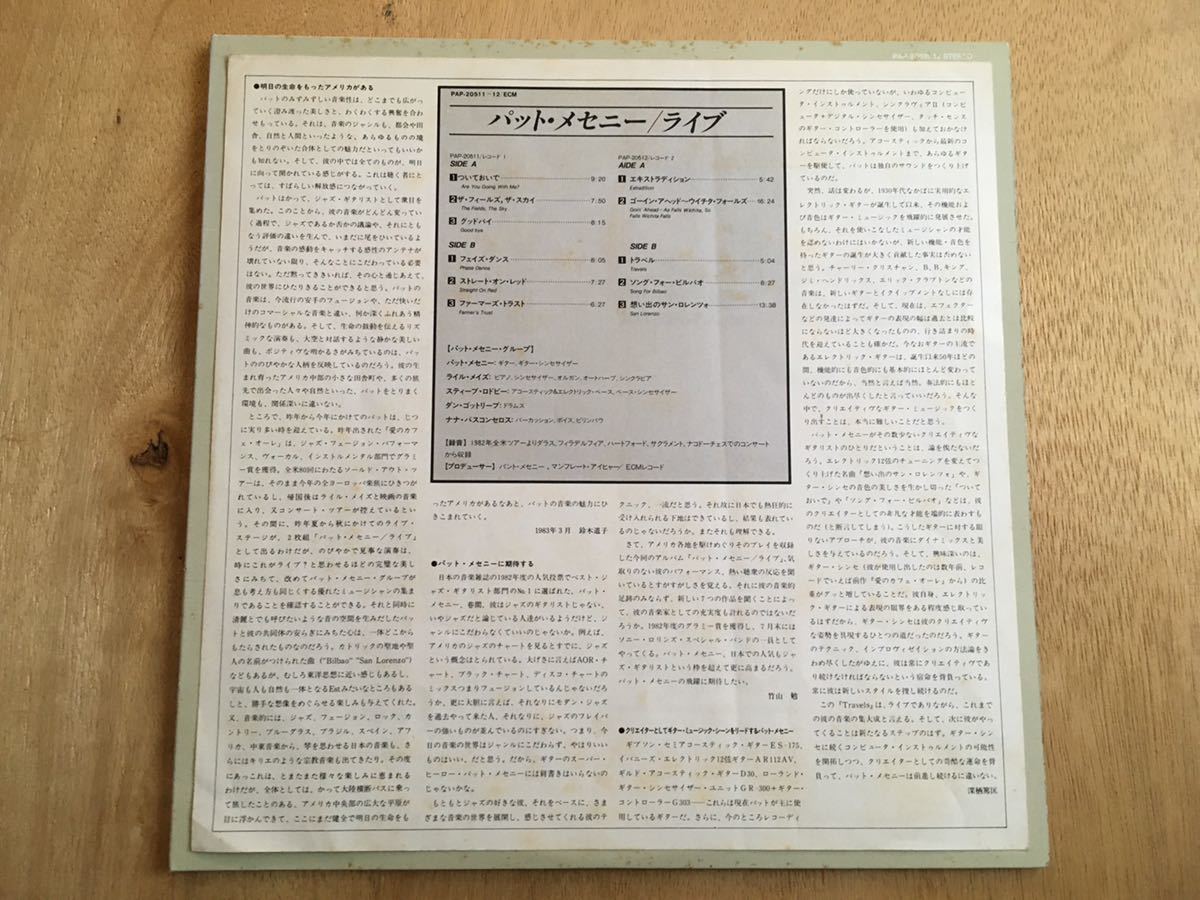 ●明日の生命をもったアメリカがある
パットのみずみずしい音楽性は、どこまでも広がっ
ていく澄み渡った美しさと、わくわくする興奮を合わ
せもっている。それは、音楽のジャンルも、都会や田
舎、自然と人間といったような、あらゆるものの境
をとりのぞいた合体としての魅力だといってもいいか
も知れない。そして、彼の中では全てのものが、明日
に向って開かれている感じがする。これは聴く者にと
っては、すばらしい解放感につながっていく。
パットはかって、ジャズ・ギタリストとして衆目を
集めた。このことから、彼の音楽がどんどん変ってい
く過程で、ジャズであるか否かの議論や、それにとも
なう評価の違いを生んで、いまだに尾をひいているよ
うだが、音楽の感動をキャッチする感性のアンテナが
壊れていない限り、そんなことにこだわっている必要
はない。ただ黙ってききいれば、その心と通じあえて、
彼の世界にひたりきることができると思う。パットの
音楽は、今流行の安手のフュージョンや、ただ快いだ
けのコマーシャルな音楽と違い、何か深くふれあう精
神的なものがある。そして、生命の鼓動を伝えるリズ
ミックな演奏も、大空と対話するような静かな美しい
曲も、ポジティヴな明かるさがみちているのは、パット
ののびやかな人柄を反映しているのだろう。彼の
生まれ育ったアメリカ中部の小さな田舎町や、多くの旅
先で出会った人々や自然といった、パットをとりまく
環境も、関係深いに違いない。
ところで、昨年から今年にかけてのパットは、じつ
に実り多い時を迎えた。昨年出された「愛のカフェ
・オーレ」は、ジャズ・フュージョン・パフォーマ
ンス、ヴォーカル、インストルメンタル部門でグラミ
ー賞を獲得。全米80回にわたるソールド・アウト・ツ
アーは、そのまま今年の全ヨーロッパ楽旅にひきつが
れているし、帰国後はライル・メイズと映画の音楽
に入り、又コンサート・ツアーが控えているとい
う。その間に、昨年夏から秋にかけてのライブ・
ステージが、2枚組「パット・メセニー/ライブ」
として出るわけだが、のびやかで見事な演奏は、
時にこれがライブ?と思わせるほどの完璧な美し
さにみちて、改めてパット・メセニー・グループが
息も考え方も同じくする優れたミュージシャンの集ま
りであることを確認することができる。それと同時に
清麗とでも呼びたいような音の空間を生みだしたパッ
トと彼の共同体の安らぎにみちた心は、一体どこから
もたらされたものなのだろう。カトリックの聖地や聖
人の名前がつけられた曲("Bilbao" "San Lorenzo")
などもあるが、むしろ東洋思想に近い感じもあるし、
宇宙も人も自然も一体となるEstみたいなところもある
しと、勝手な想像をめぐらせる楽しみも与えてくれた。
又、音楽的には、ジャズ、フュージョン、ロック、カ
ントリー、ブルーグラス、ブラジル、スペイン、アフ
リカ、中東音楽から、琴を思わせる日本の音楽も、さ
らにはキリエのような宗教音楽も出てきたり。その度
にあっこれは、とまたまた様々な楽しみに恵まれる
わけだが、全体としては、かって大陸横断バスに乗っ
て旅したことのある、アメリカ中央部の広大な平原が
目に浮かんできて、ここにまだ健全で明日の生命をも
PAP-20511〜12/ECM
パット・メセニー/ライブ
PAP-20511/レコード 1
SIDE A
1 ついておいで 9:20
Are You Going With Me?
2 ザ・フィールズ、ザ・スカイ 7:50
The Fields, The Sky
3 グッドバイ 8:15
Good bye
SIDE B
1 フェイズ・ダンス 8:05
Phase Dance
2 ストレート・オン・レッド 7:27
Straight On Red
3 ファーマーズ・トラスト 6:27
Farmer's Trust
PAP-20512/レコード 2
AIDE A
1 エキストラディション 5:42
Extradition
2 ゴーイン・アヘッド〜ウイチタ・フォールズ 16:24
Goin' Ahead〜As Falls Wichita, So
Falls Wichita Falls
SIDE B
1 トラベル 5:04
Travels
2 ソング・フォー・ビルバオ 8:27
Song For Bilbao
3 想い出のサン・ロレンツォ 13:38
San Lorenzo
【パット・メセニー・グループ】
パット・メセニー: ギター、ギター・シンセサイザー
ライル・メイズ: ピアノ、シンセサイザー、オルガン、オートハープ、シンクラビア
スティーブ・ロドビー: アコースティック&エレクトリック・ベース、ベース・シンセサイザー
ダン・ゴットリーブ: ドラムス
ナナ・バスコンセロス: パーカッション、ボイス、ビリンバウ
【録音】1982年全米ツアーよりダラス、フィラデルフィア、ハートフォード、サクラメント、ナコドーチェスでのコンサート
から収録
【プロデューサー】パット・メセニー、マンフレート・アイヒャー/ECMレコード
ったアメリカがあるなあと、パットの音楽の魅力にひ
きこまれていく。
1983年3月 鈴木道子
●パット・メセニーに期待する
日本の音楽雑誌の1982年度の人気投票でベスト・ジ
ャズ・ギタリスト部門のNo.1に選ばれた、パット・
メセニー、巷間、彼はジャズのギタリストじゃない、
いやジャズだと論じている人達がいるようだけど、ジ
ャンルにこだわらなくていいのじゃないか。例えば、
アメリカのジャズのチャートを見るとすでに、ジャズ
という概念はとられている。大げさに言えばAOR・チ
ャート、ブラック・チャート、ディスコ・チャートの
ミックスつまりフュージョンしているんじゃないだろ
うか。更に大胆に言えば、それなりにモダン・ジャズ
を過去やって来た人、それなりに、ジャズのフレイバ
ーの強いものが並んでいるのにすぎない。つまり、今
日の音楽の世界はジャンルにこだわらず、やはりいい
ものはいい、だと思う。だから、ギターのスーパー・
ヒーロー・パット・メセニーには肩書きはいらないの
じゃないかな。
もともとジャズの好きな彼、それをベースに、さま
ざまな音楽の世界を展開し、感じさせてくれる彼のテ
クニック、一流だと思う。それ故に日本でも熱狂的に
受け入れられる下地はできているし、結果も表れてい
るのじゃないだろうか。またそれも理解できる。
さて、アメリカ各地を駆けめぐりそのプレイを収録
した今回のアルバム「パット・メセニー/ライブ」、気
取りのない彼のパフォーマンス、熱い聴衆の反応を聞
いているとすがすがしさを覚える。それに彼の音楽的
足跡のみならず、新しい7つの作品を聞くことによっ
て、彼の音楽家としての充実度も計れるのではないだ
ろうか。1982年度のグラミー賞を獲得し、7月末には
ソニー・ロリンズ・スペシャル・バンドの一員として
やってくる。パット・メセニー、日本での人気もジャ
ズ・ギタリストという枠を超えて更に高まるだろう。
パット・メセニーの飛躍に期待したい。
竹山 勉
●クリエイターとしてギター・ミュージック・シーンをリードするパット・メセニー
ギブソン・セミアコースティック・ギターES-175、
イバニーズ・エレクトリック12弦ギターAR112AV、
ギルド・アコースティック・ギターD30、ローランド・
ギター・シンセサイザー・ユニットGR 300+ギター・
コントローラーG303——これらは現在パットが主に使
用しているギターだ。さらに、今のところレコーディ
ングだけにしか使っていないが、いわゆるコンピュー
タ・インストゥルメント、シンクラヴィアII(コンピ
ュータ+デジタル・シンセサイザー、タッチ・センス
のギター・コントローラーを使用)も加えておかなけれ
ばならないだろう。アコースティックから最新のコン
ピュータ・インストゥルメントまで、あらゆるギター
を駆使して、パットは独自のサウンドをつくり上
げているのだ。
突然、話は変わるが、1930年代なかばに実用的なエ
レクトリック・ギターが誕生して以来、その機能およ
び音色はギター・ミュージックを飛躍的に発展させた。
もちろん、それを使いこなしたミュージシャンの才能
を認めないわけにはいかないが、新しい機能・音色を
持ったギターの誕生が大きく貢献した事実は否めない
と思う。チャーリー・クリスチャン、B.B.キング、
ジミ・ヘンドリックス、エリック・クラプトンなどの
音楽は、新しいギターとイクイップメントなしには存
在しなかったはずだ。そして、現在は、エフェクター
などの発達によってギターの表現の幅は過去とは比較
にならないほど大きくなったものの、行き詰まりの時
代を迎えていることも確かだ。今なおギターの主流で
あるエレクトリック・ギターは、誕生以来50年ほどの
間、機能的にも音色的にも基本的にほとんど変わって
いないのだから、当然と言えば当然。奏法的にもほと
んどのものが出尽くしたと言っていいだろう。そんな
中で、クリエイティヴなギター・ミュージックをつく
り出すことは、本当に難しいことだと思う。
パット・メセニーがその数少ないクリエイティヴな
ギタリストのひとりだということは、論を俟たないだ
ろう。エレクトリック12弦のチューニングを変えてつ
くり上げた名曲「想い出のサン・ロレンツォ」や、ギ
ター・シンセの音色の美しさを生かし切った「ついて
おいで」や「ソング・フォー・ビルバオ」などは、彼
のクリエイターとしての非凡な才能を端的に表わすも
のだ(と断言してしまう)。こうしたギターに対する限
りないアプローチが、彼の音楽にダイナミックスと美
しさを与えているのだろう。そして、興味深いのは、
ギター・シンセ(彼が使用し出したのは数年前、レコー
ドでいえば前作『愛のカフェ・オーレ』から)の比
重がグッと増していることだ。彼自身、エレクトリッ
ク・ギターによる表現の限界をある程度感じ取ってい
るはずだから、ギター・シンセは彼のクリエイティヴ
な姿勢を具現するひとつの道だったのだろう。ギター
のテクニック、インプロヴィゼイションの方法論をき
わめ尽くしたがゆえに、彼は常にクリエイティヴであ
り続けなければならないという宿命を背負っている。
常に彼は新しいスタイルを捜し続けるのだ。
この『Travels』は、ライブでありながら、これまで
の彼の音楽の集大成と言える。そして、次に彼がやっ
てくることは新たなるステップのはず。ギター・シン
セに続くコンピュータ・インストゥルメントの可能性
を開拓しつつ、クリエイターとしての苛酷な運命を背
負って、パット・メセニーは前進し続けるに違いない。